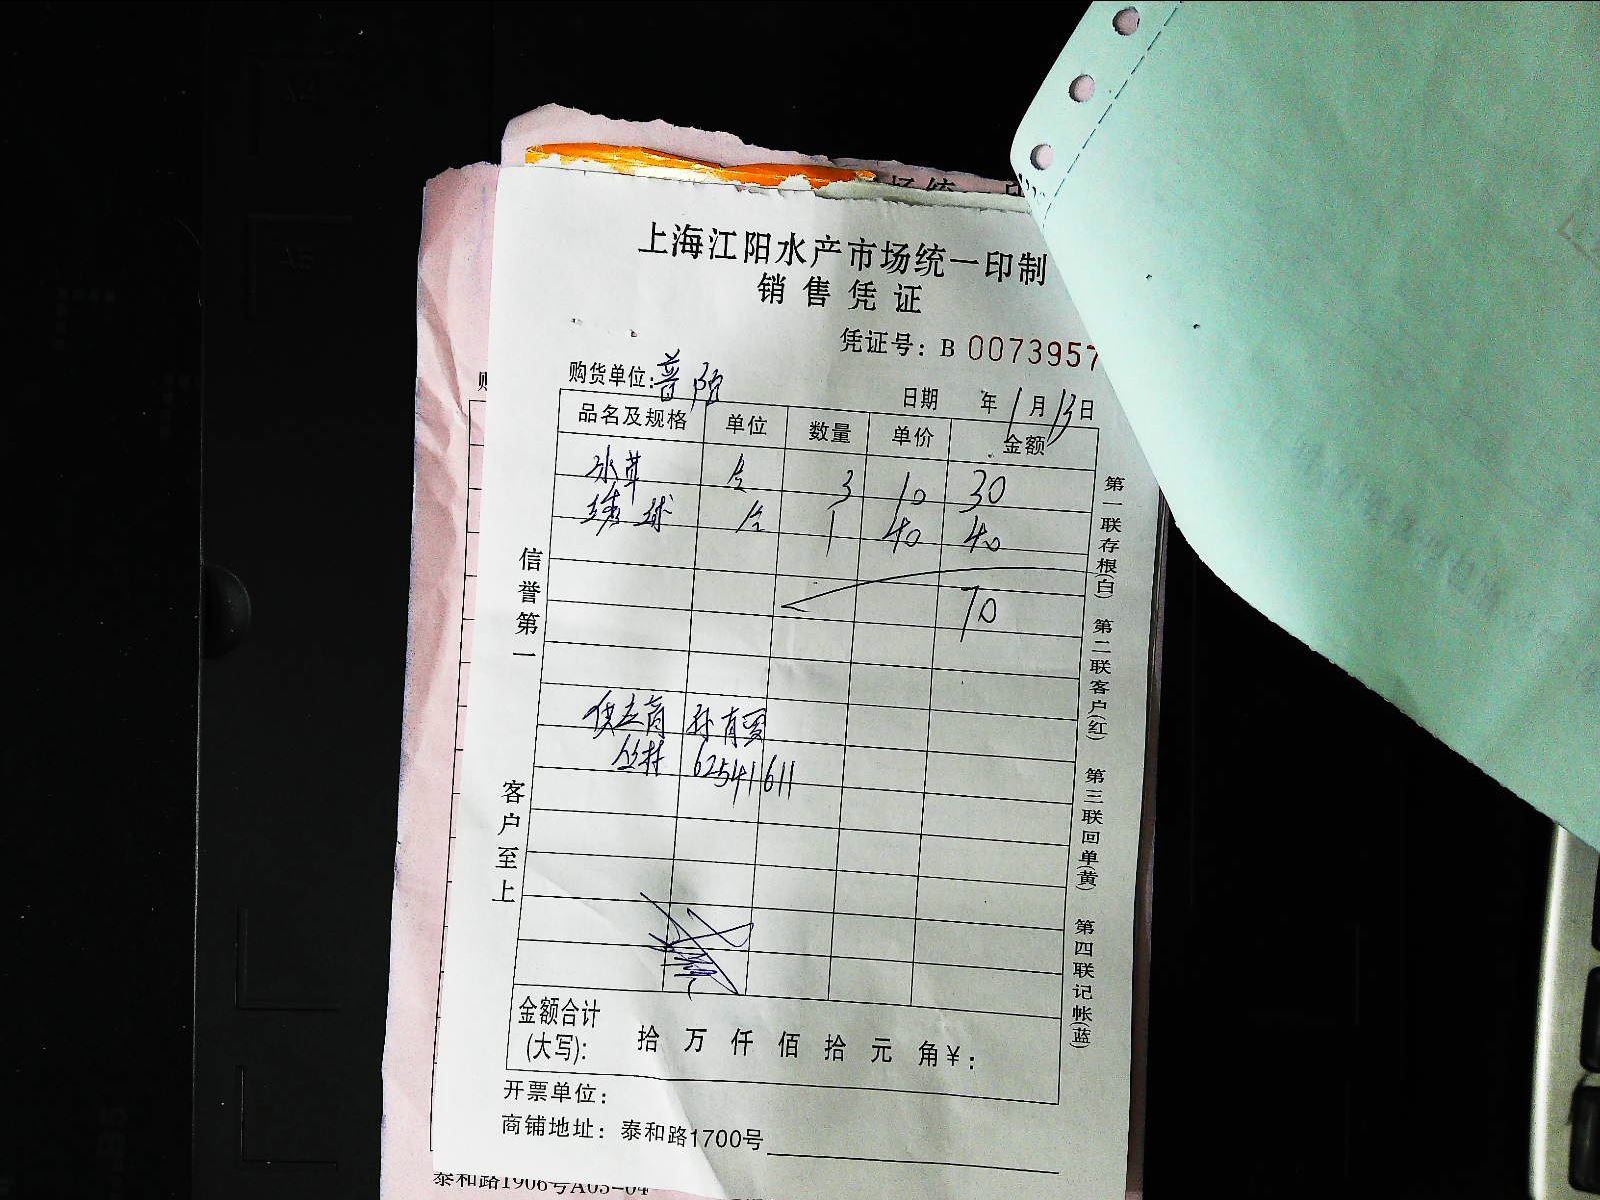 上海江阳水产市场统一印制
销售凭证
凭证号：B 0073957
购货单位：普陀
日期 年 1 月 13 日
品名及规格 单位 数量 单价 金额
水草 3 10 30
绣球 1 40 40
70
供应商 孙有
丛林 62541611
信誉第一
客户至上
第一联存根(白) 第二联客户(红) 第三联回单(黄) 第四联记帐(蓝)
金额合计
(大写)： 拾 万 仟 佰 拾 元 角 ¥：
开票单位：
商铺地址：泰和路1700号
泰和路1906号A05-04